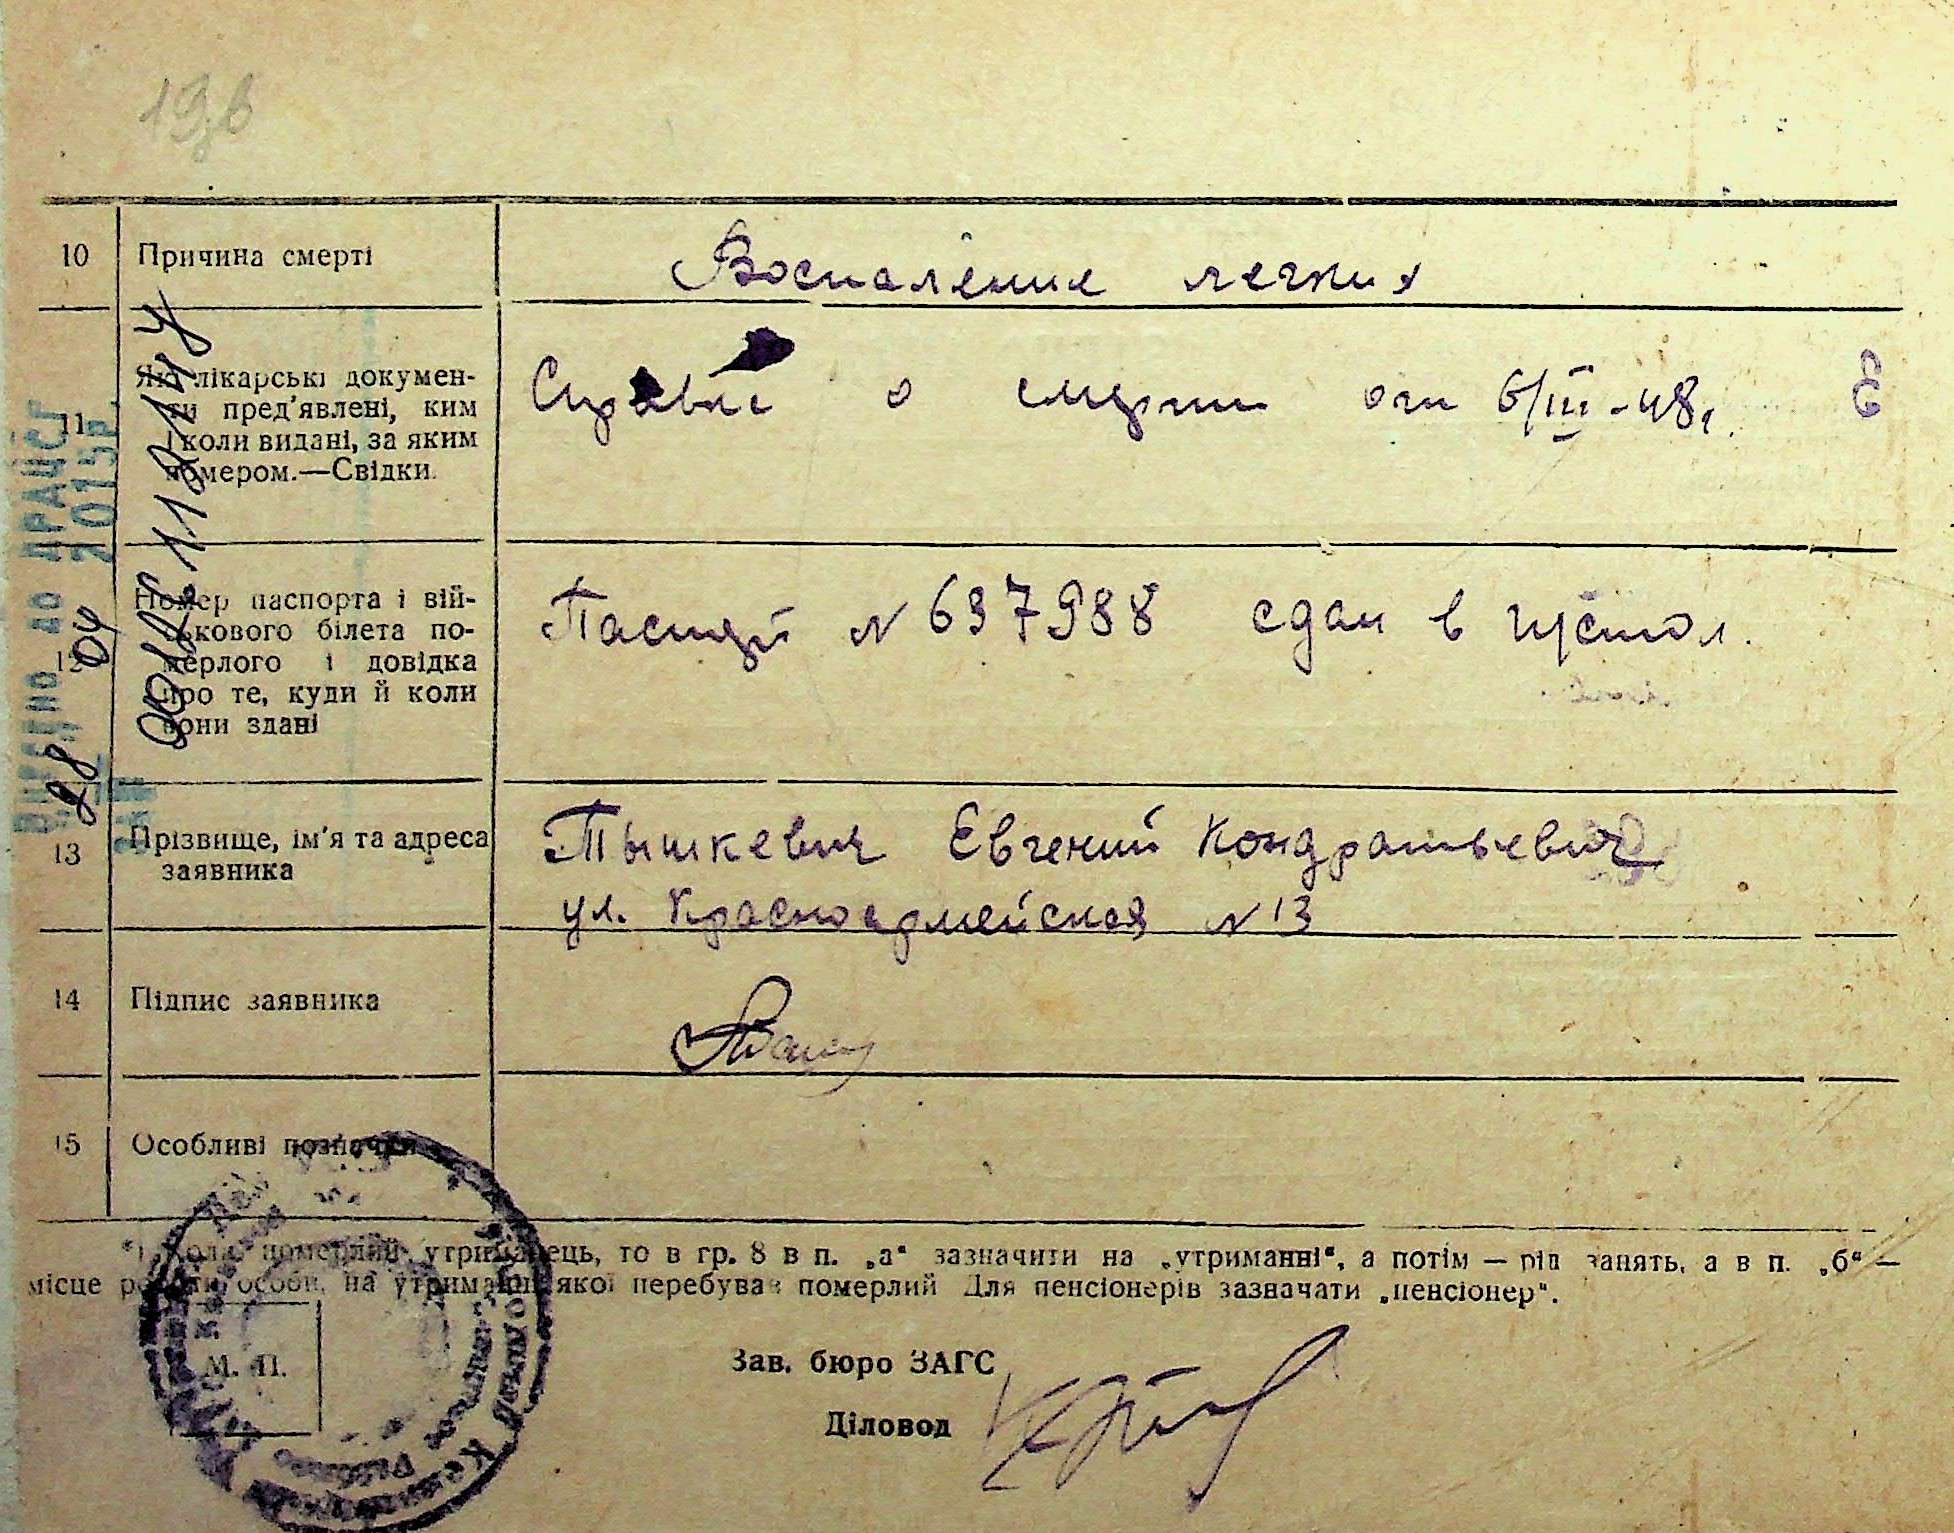 10 Причина смерті
Воспаление легких
11 Які лікарські докумен-
ти пред'явлені, ким
і коли видані, за яким
номером.—Свідки.
Справка о смерти от 6/III-48г.
12 Номер паспорта і вій-
ськового білета по-
мерлого і довідка
про те, куди й коли
вони здані
Паспорт № 697988 сдан в п/стол.
13 Прізвище, ім'я та адреса
заявника
Тышкевич Евгений Кондратьевич
ул. Красноармейская № 13
14 Підпис заявника
15 Особливі позначки
утриманець, то в гр. 8 в п. „а“ зазначити на „утриманні“, а потім — рід занять, а в п. „б“ —
місце роботи особи, на утриманні якої перебував померлий Для пенсіонерів зазначати „пенсіонер“.
М. П.
Зав. бюро ЗАГС
Діловод
ДРАЦСГ
2015р.
28 04